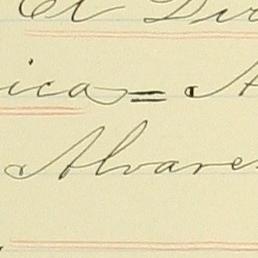 El Dir
ica = A
Alvare